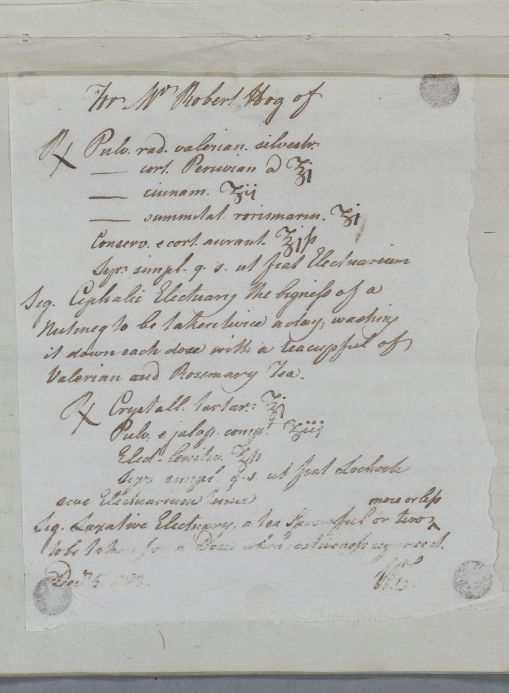 For Mr Robert Hog of
℞ Pulv. rad. valerian. silvestr.
— cort. Peruvian a ʒi
— cinnam. ʒii
— summitat. rorismarin. ʒi
Conserv. e cort. aurant. ℥iß
Syr. simpl. q. s. ut fiat Electuarium
Sig. Cephalic Electuary the bigness of a
Nutmeg to be taken twice a day, washing
it down each dose with a teacupful of
Valerian and Rosemary Tea.
℞ Crystall. tartar. ℥i
Pulv. e jalap. compt. ʒiii
Elect. lenitiv. ℥iß
Syr. simpl. q. s. ut fiat Lochoch
seve Electuarium
more or less
Sig. Laxative Electuary, a tea spoonful or two
to be taken for a Dose when costiveness requires it.
Decr 5